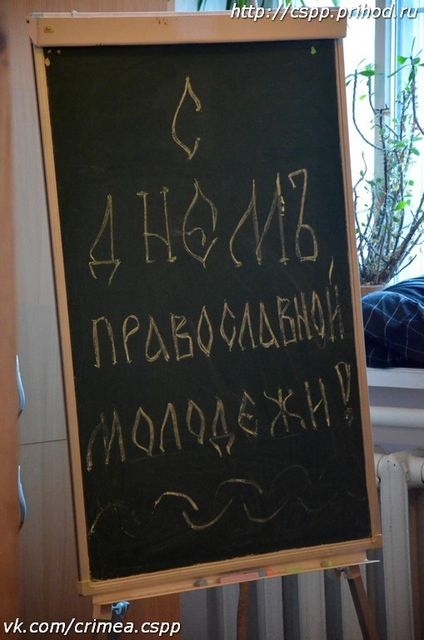 http://cspp.prihod.ru
С
ДНЕМЪ
ПРАВОСЛАВНОЙ
МОЛОДЕЖИ!
vk.com/crimea.cspp